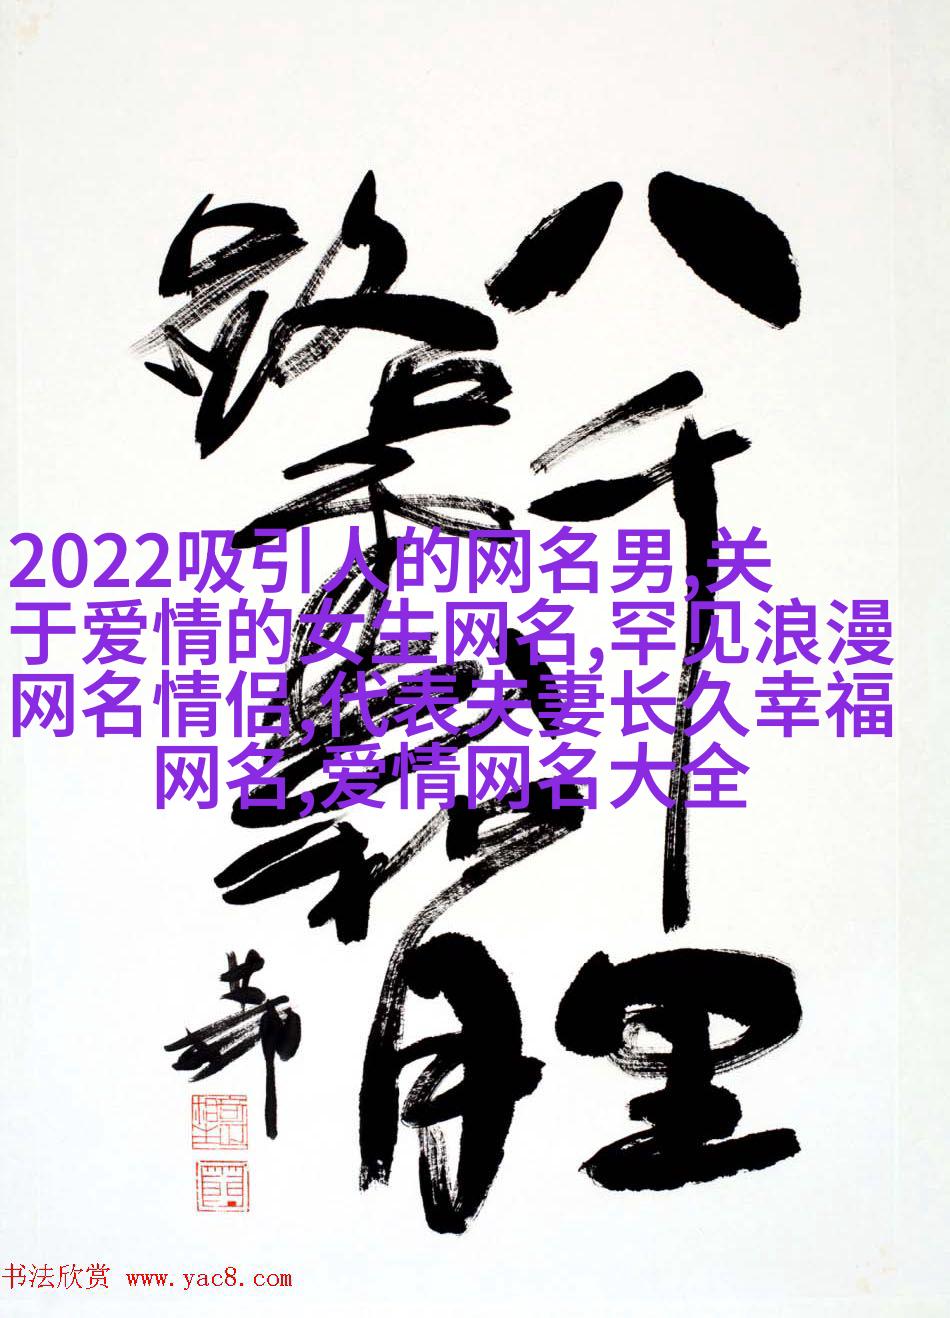 八千里
路雲和月
2022吸引人的网名男,关
于爱情的女生网名,罕见浪漫
网名情侣,代表夫妻长久幸福
网名,爱情网名大全
书法欣赏 www.yac8.com